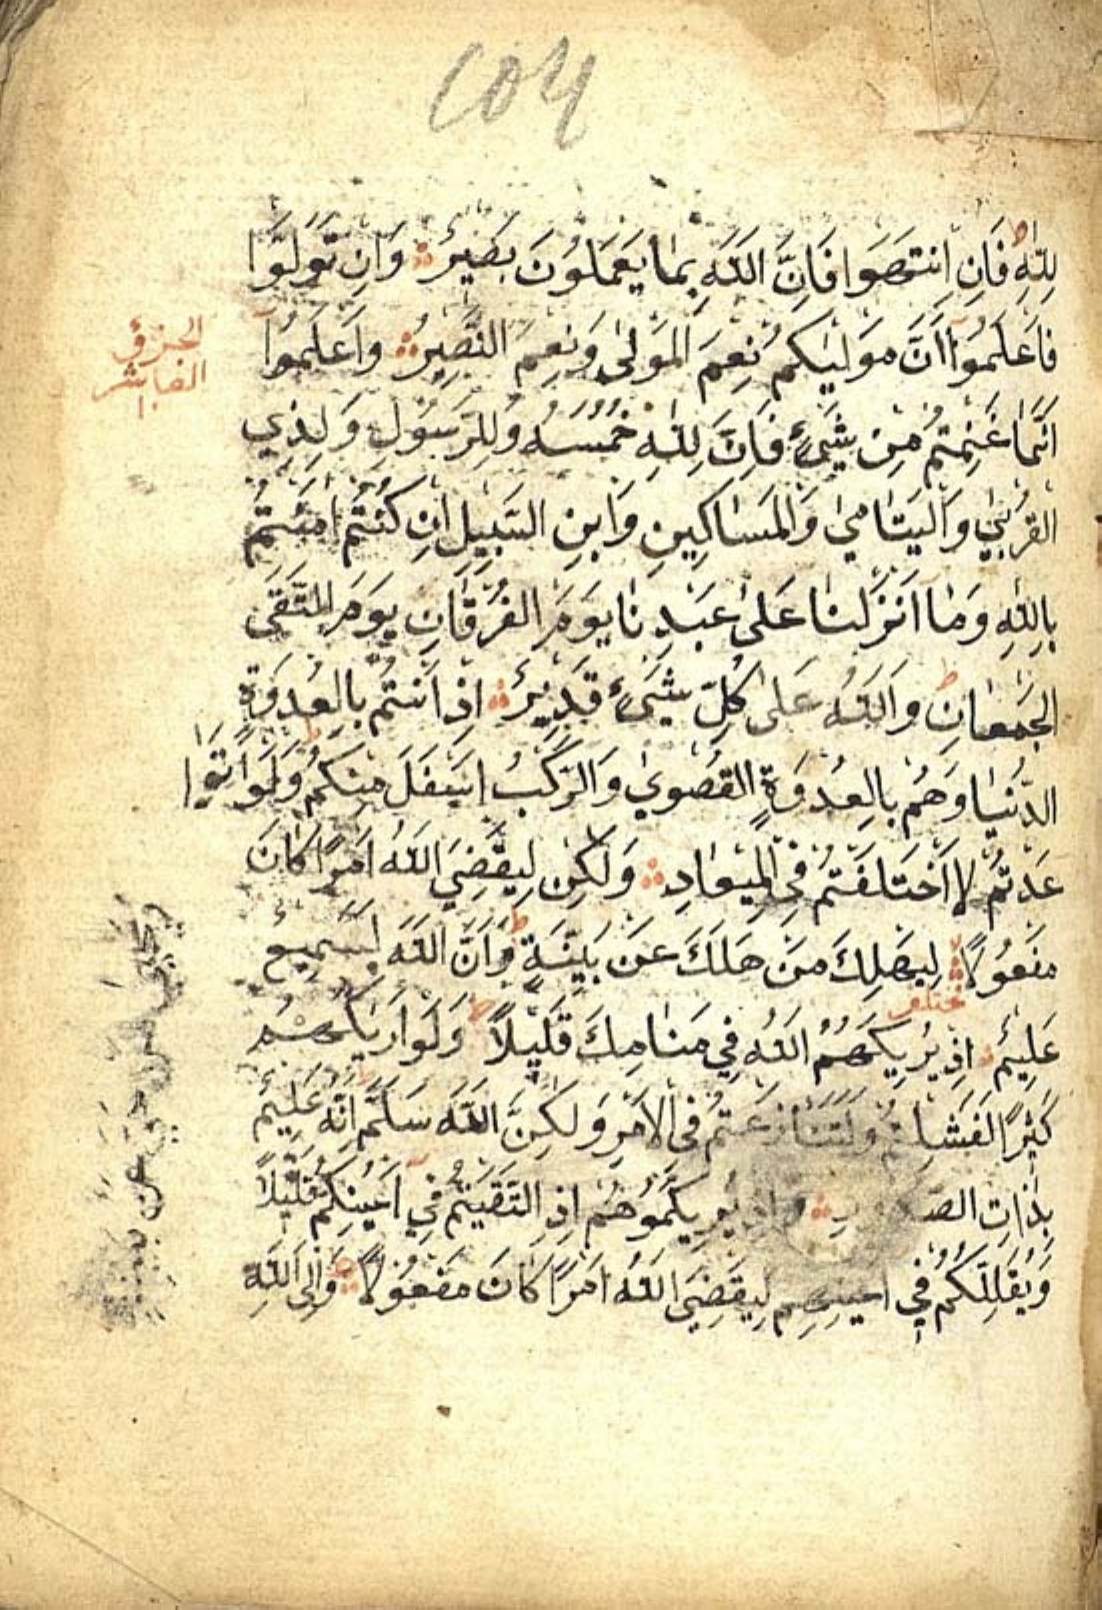 ٢٥٤
لِلّٰهِ فَاِنِ انْتَهَوْا فَاِنَّ اللّٰهَ بِمَا يَعْمَلُونَ بَصِيرٌ وَاِنْ تَوَلَّوْا
فَاعْلَمُوا اَنَّ مَوْلٰيكُمْ نِعْمَ الْمَوْلٰى وَنِعْمَ النَّصِيرُ وَاعْلَمُوا
الجزؤ
العاشر
اَنَّمَا غَنِمْتُمْ مِنْ شَيْءٍ فَاَنَّ لِلّٰهِ خُمُسَهُ وَلِلرَّسُولِ وَلِذِي
الْقُرْبٰى وَالْيَتَامٰى وَالْمَسَاكِينِ وَابْنِ السَّبِيلِ اِنْ كُنْتُمْ اٰمَنْتُمْ
بِاللّٰهِ وَمَا اَنْزَلْنَا عَلٰى عَبْدِنَا يَوْمَ الْفُرْقَانِ يَوْمَ الْتَقَى
الْجَمْعَانِ وَاللّٰهُ عَلٰى كُلِّ شَيْءٍ قَدِيرٌ اِذْ اَنْتُمْ بِالْعُدْوَةِ
الدُّنْيَا وَهُمْ بِالْعُدْوَةِ الْقُصْوٰي وَالرَّكْبُ اَسْفَلَ مِنْكُمْ وَلَوْ تَوَا
عَدْتُمْ لَاخْتَلَفْتُمْ فِي الْمِيعَادِ وَلٰكِنْ لِيَقْضِيَ اللّٰهُ اَمْرًا كَانَ
مَفْعُولًا لِيَهْلِكَ مَنْ هَلَكَ عَنْ بَيِّنَةٍ وَاَنَّ اللّٰهَ لَسَمِيعٌ
ويحيى من حي عن بينة
مختلف
عَلِيمٌ اِذْ يُرِيكَهُمُ اللّٰهُ فِي مَنَامِكَ قَلِيلًا وَلَوْ اَرٰيكَهُمْ
كَثِيرًا لَفَشِلْتُمْ وَلَتَنَازَعْتُمْ فِي الْاَمْرِ وَلٰكِنَّ اللّٰهَ سَلَّمَ اِنَّهُ عَلِيمٌ
بِذَاتِ يُرِيكُمُوهُمْ اِذِ الْتَقَيْتُمْ فِي اَعْيُنِكُمْ قَلِيلًا
وَيُقَلِّلُكُمْ فِي اَعْيُنِهِمْ لِيَقْضِيَ اللّٰهُ اَمْرًا كَانَ مَفْعُولًا وَاِلَى اللّٰهِ